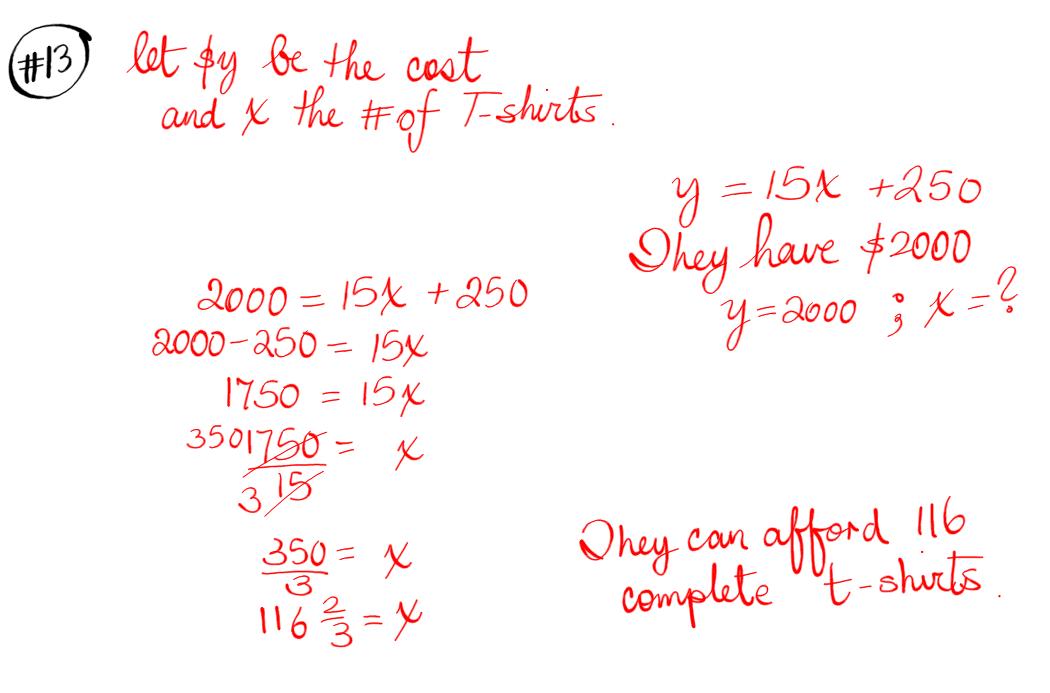 #13
let $y be the cost
and x the # of T-shirts.
y = 15x + 250
They have $2000
y = 2000 ; x = ?
2000 = 15x + 250
2000 - 250 = 15x
1750 = 15x
350 1750/3 15 = x
350/3 = x
116 2/3 = x
They can afford 116
complete t-shirts.